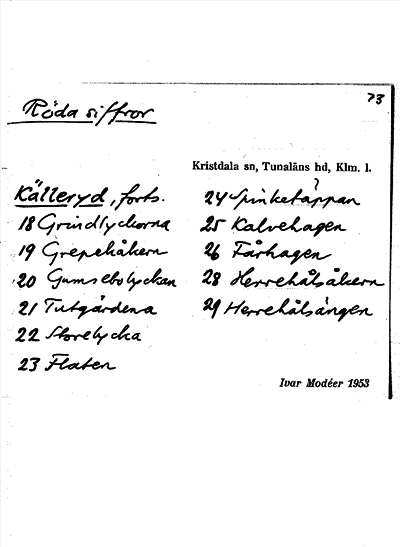 73
Röda siffror
Kristdala sn, Tunaläns hd, Klm. l.
Källeryd, forts.
18 Grindlyckorna
19 Grepekåkern
20 Gumsebolyckan
21 Tutgårdena
22 Storelycka
23 Flaten
?
24 Spinketäppan
25 Kalvehagen
26 Fårhagen
28 Herrehålsåkern
29 Herrehålsängen
Ivar Modéer 1953